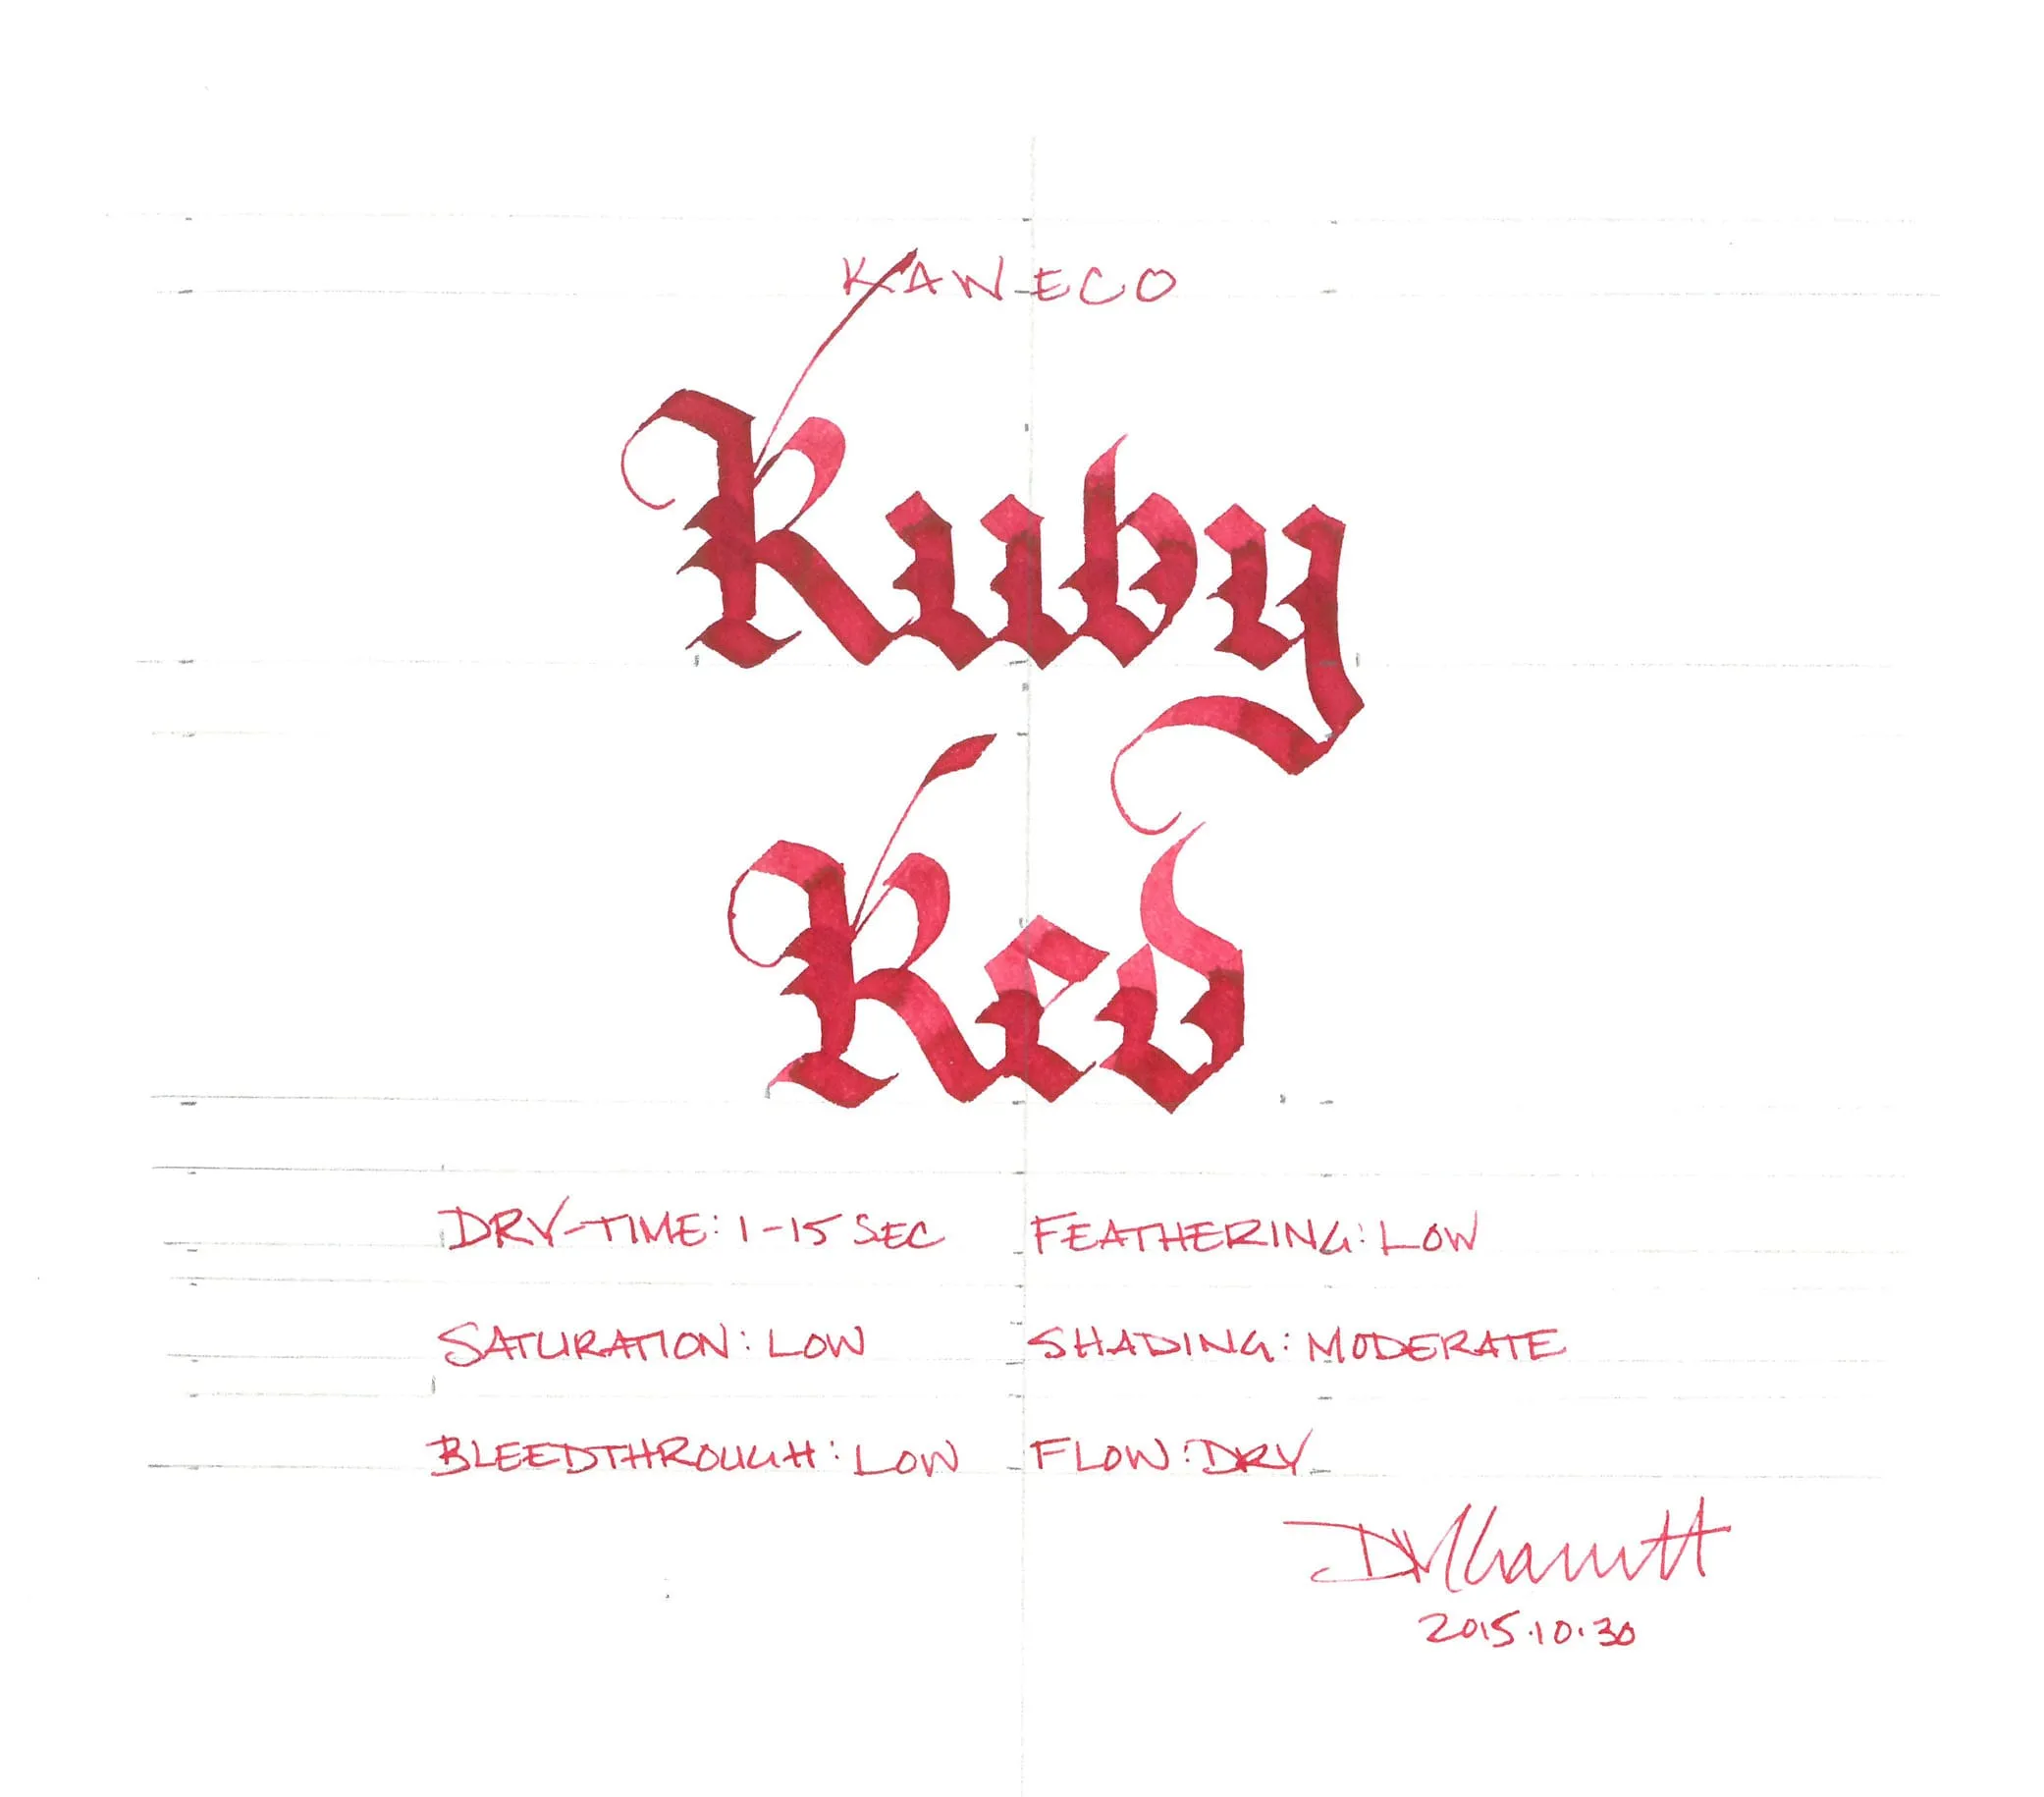 KAWECO
Ruby
Red
DRY-TIME: 1-15 SEC FEATHERING: LOW
SATURATION: LOW SHADING: MODERATE
BLEEDTHROUGH: LOW FLOW: DRY
2015.10.30